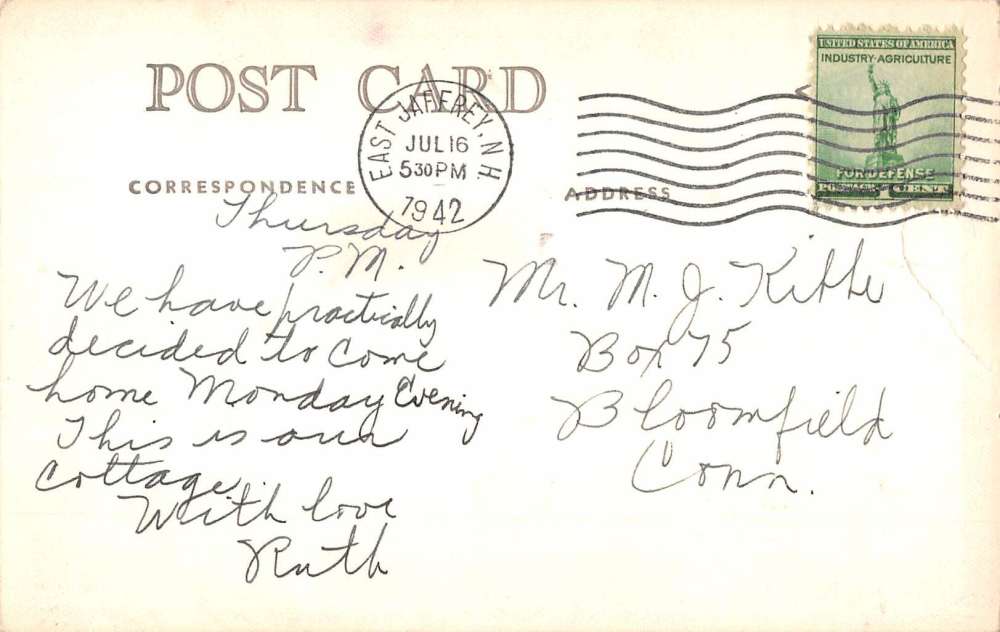 POST CARD
EAST JAFFREY, N.H.
JUL 16
5 30 PM
1942
UNITED STATES OF AMERICA
INDUSTRY·AGRICULTURE
FOR DEFENSE
CORRESPONDENCE
ADDRESS
Thursday
P.M.
We have practically
decided to come
home Monday Evening
This is our
cottage.
With love
Ruth
Mr. M. J. Kibbe
Box 75
Bloomfield
Conn.